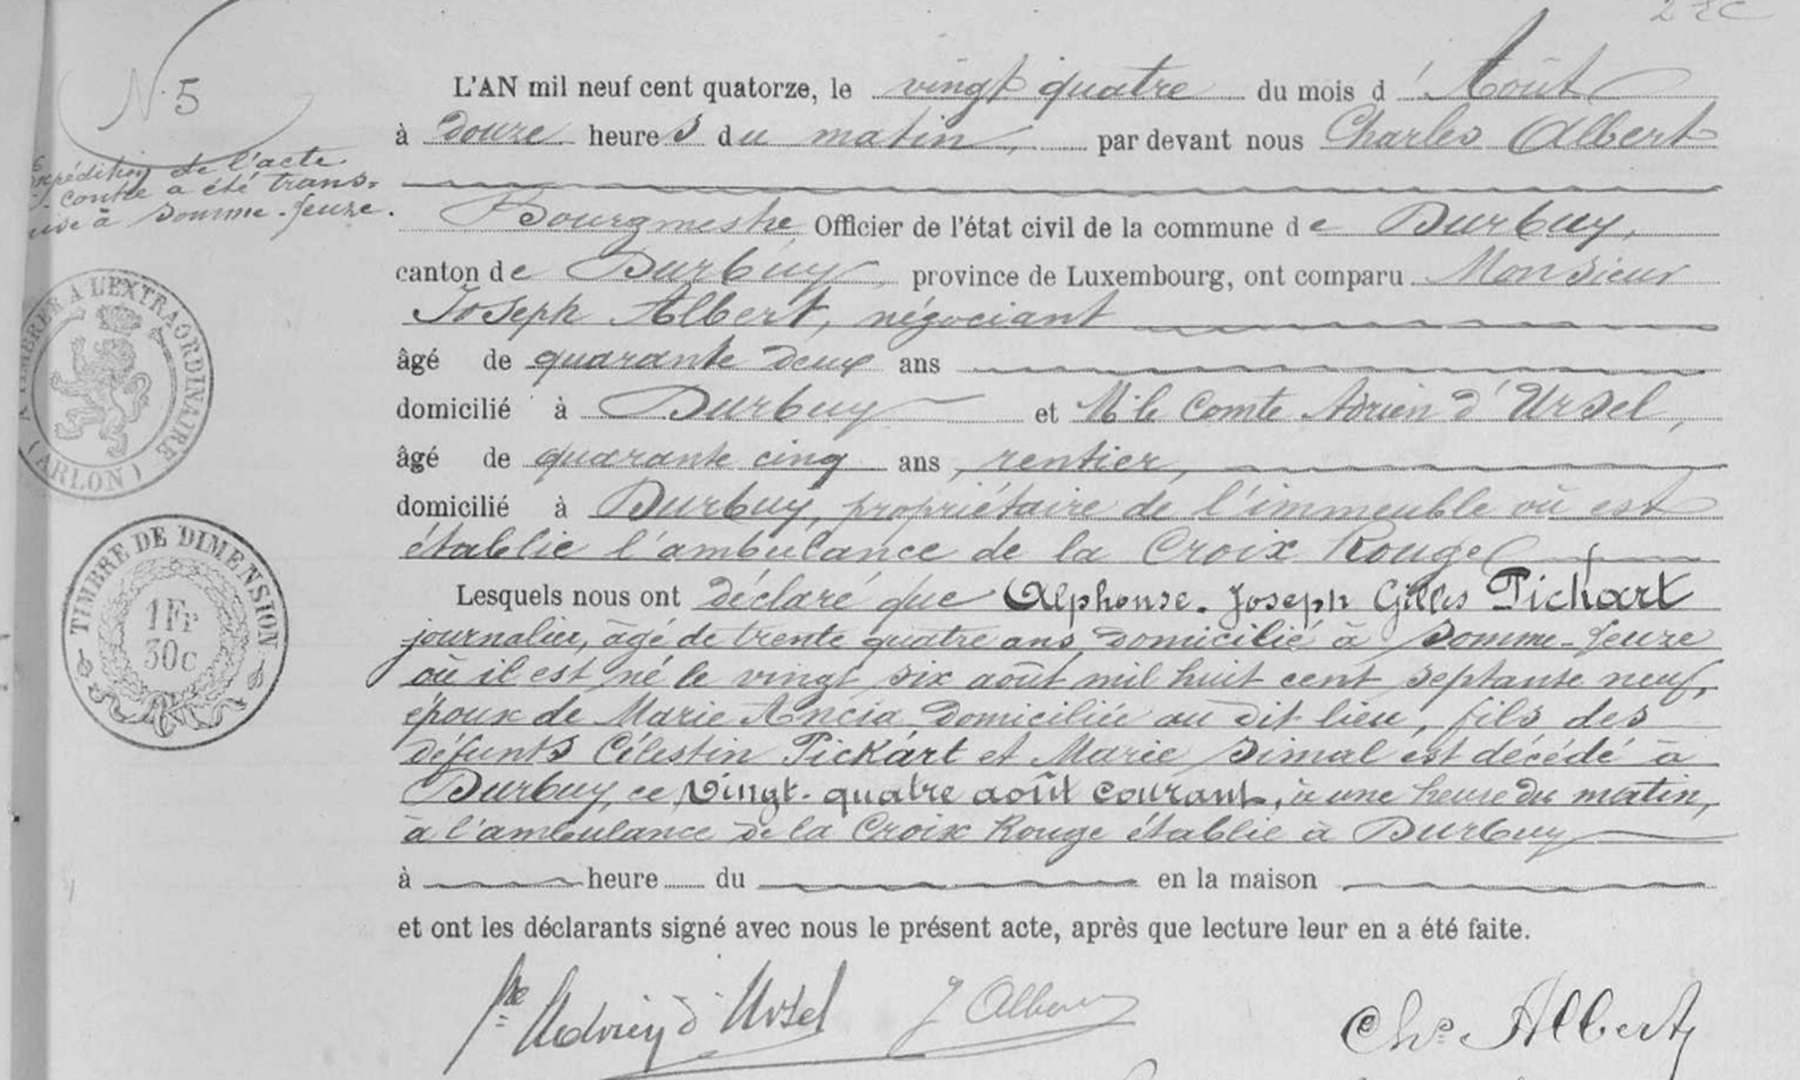 N. 5
expédition de l'acte
contre a été trans-
mise à Somme-Leuze.
A TIMBRER A L'EXTRAORDINAIRE
(ARLON)
TIMBRE DE DIMENSION
1Fr
30c
L'AN mil neuf cent quatorze, le vingt quatre du mois d' Août
à douze heures du matin, par devant nous Charles Albert
Bourgmestre Officier de l'état civil de la commune de Durbuy,
canton de Durbuy, province de Luxembourg, ont comparu Monsieur
Joseph Albert, négociant
âgé de quarante deux ans
domicilié à Durbuy et M. le Comte Adrien d'Ursel,
âgé de quarante cinq ans, rentier,
domicilié à Durbuy, propriétaire de l'immeuble où est
établie l'ambulance de la Croix Rouge
Lesquels nous ont déclaré que Alphonse. Joseph Gilles Pickart
journalier, âgé de trente quatre ans, domicilié à Somme-Leuze
où il est né le vingt six août mil huit cent septante neuf,
époux de Marie Ancia domiciliée au dit lieu, fils des
défunts Célestin Pickart et Marie Simal est décédé à
Durbuy, ce vingt-quatre août courant, à une heure du matin,
à l'ambulance de la Croix Rouge établie à Durbuy
à heure du en la maison
et ont les déclarants signé avec nous le présent acte, après que lecture leur en a été faite.
Adrien d'Ursel J Albert Chs Albert